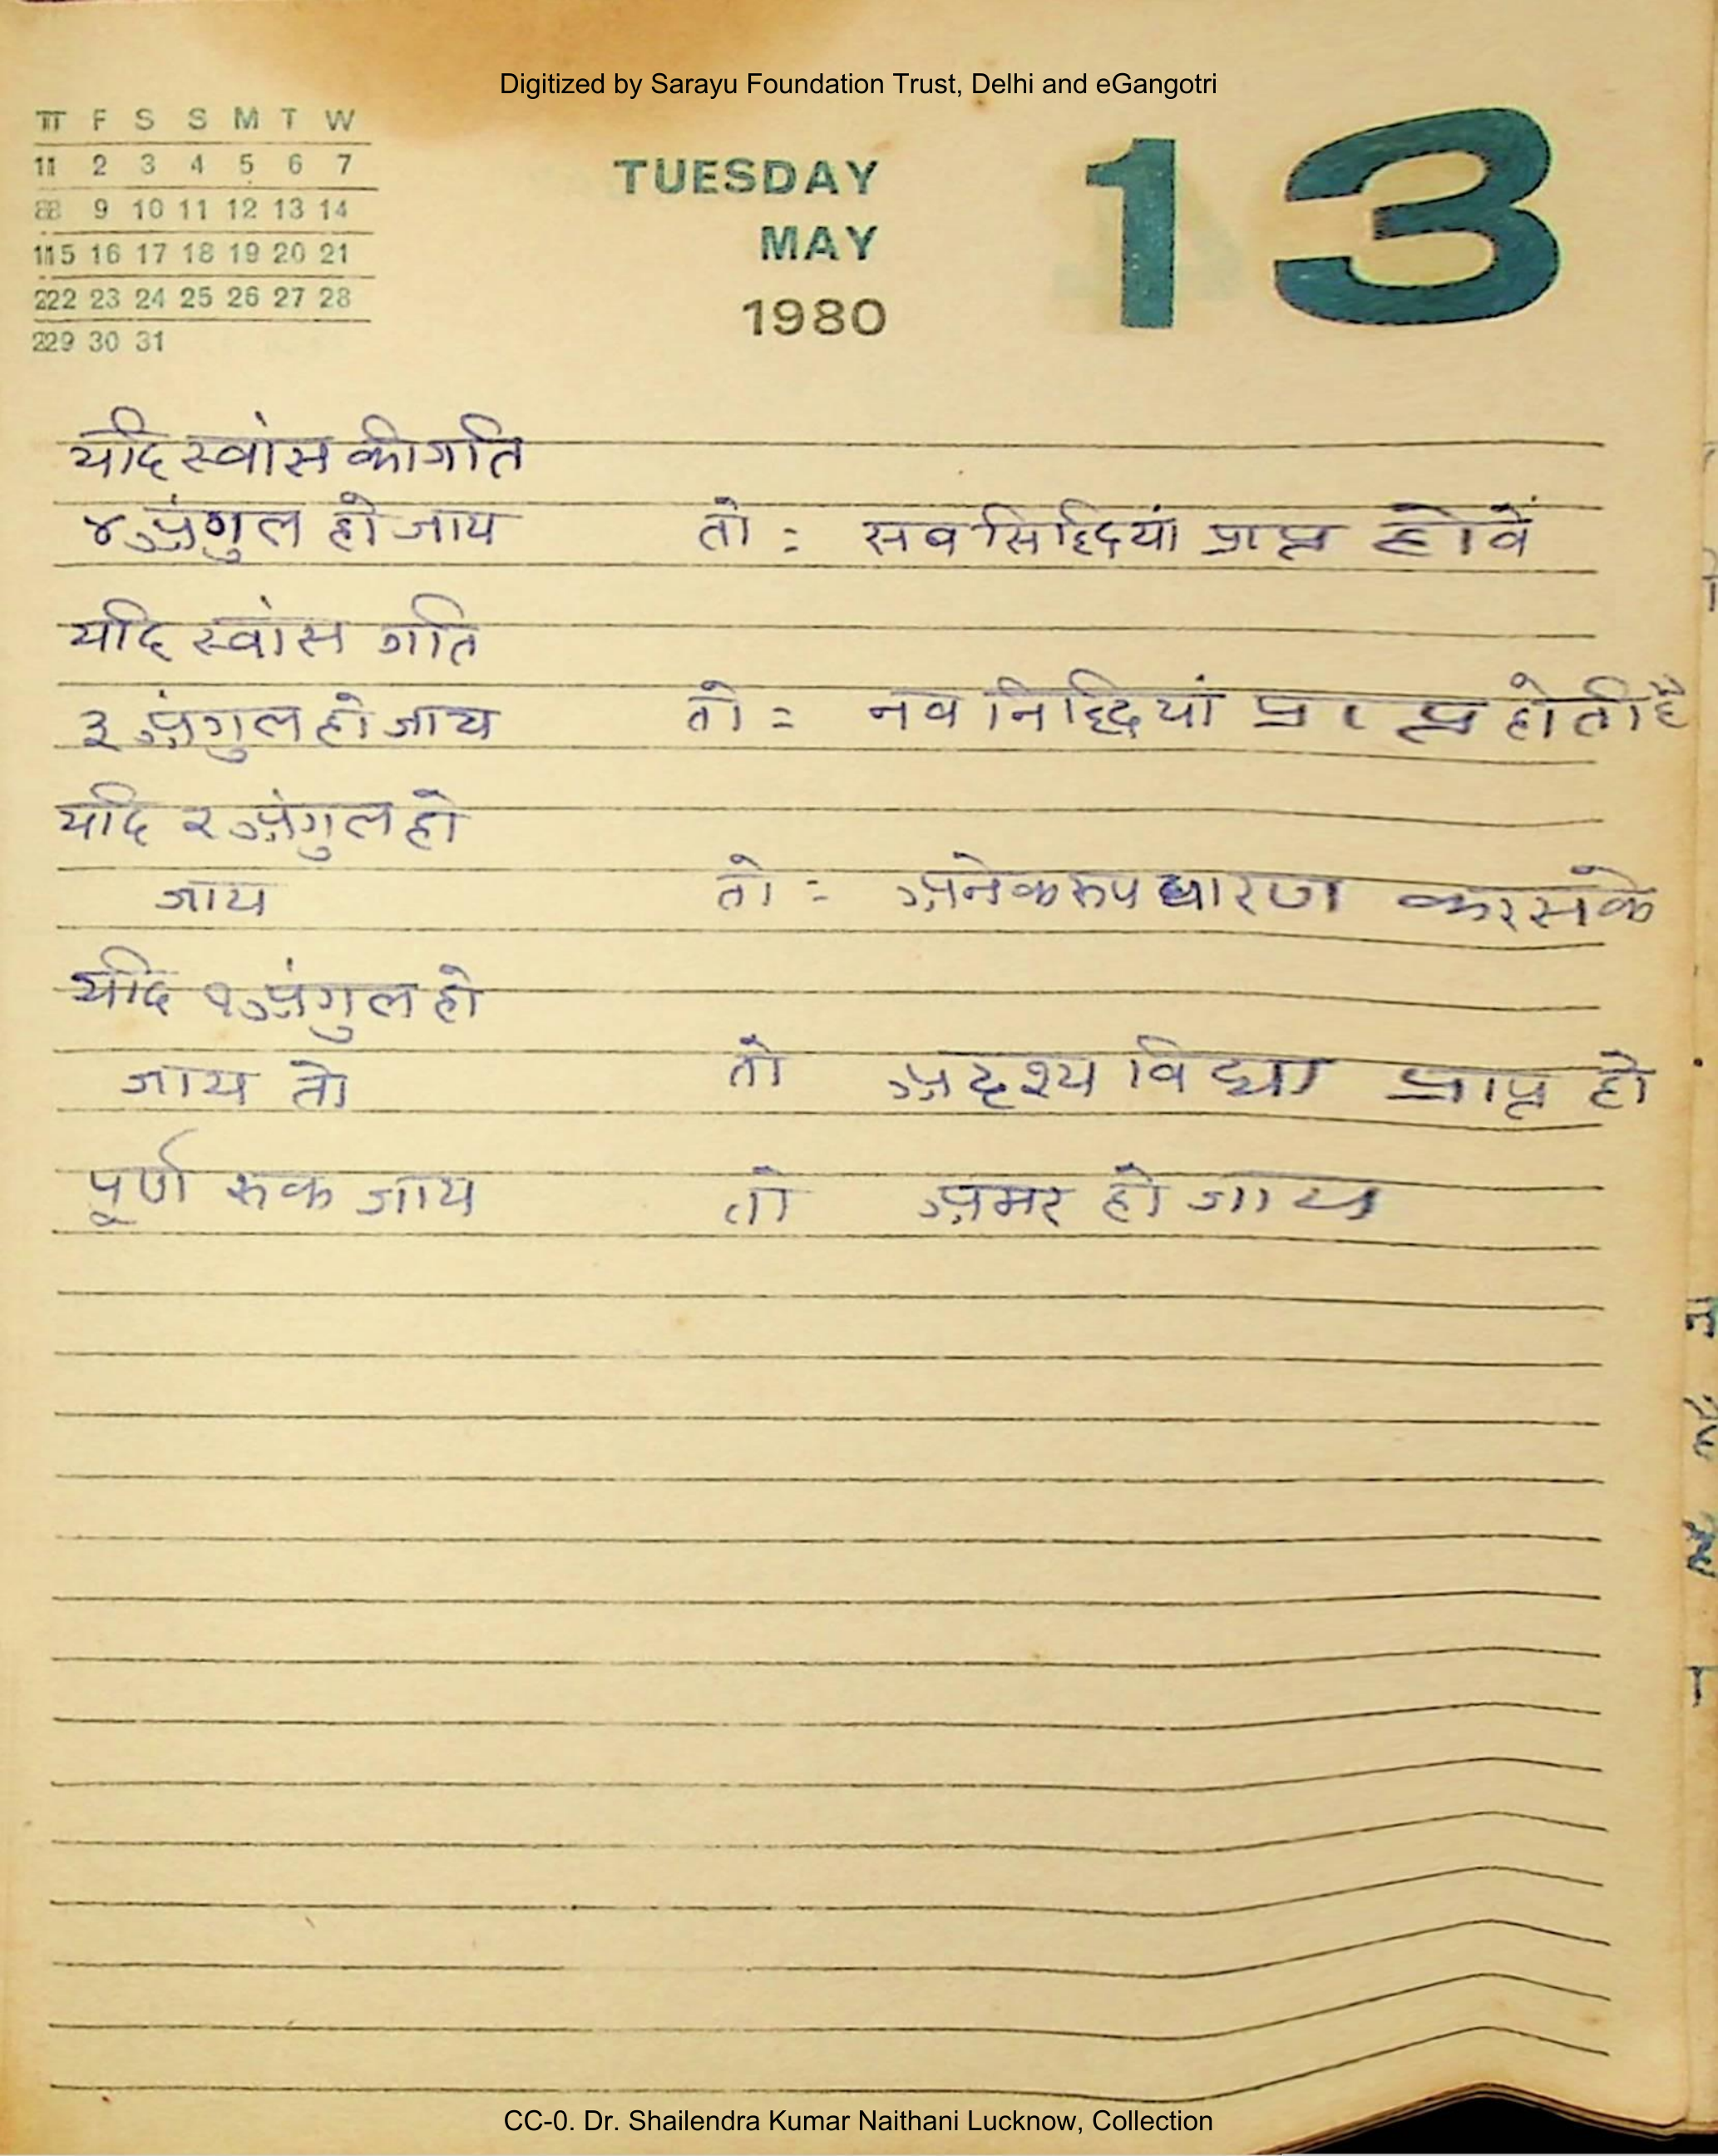 Digitized by Sarayu Foundation Trust, Delhi and eGangotri
T F S S M T W
1 2 3 4 5 6 7
8 9 10 11 12 13 14
15 16 17 18 19 20 21
22 23 24 25 26 27 28
29 30 31
TUESDAY
MAY
1980
13
यदि स्वांस की गति
४ अंगुल हो जाय तो : सब सिद्धियां प्राप्त होवें
यदि स्वांस गति
३ अंगुल हो जाय तो = नव निद्धियां प्राप्त होती है
यदि २ अंगुल हो
जाय तो = अनेक रूप धारण कर सके
यदि १ अंगुल हो
जाय तो तो अदृश्य विद्या प्राप्त हो
पूर्ण रूक जाय तो अमर हो जाय
CC-0. Dr. Shailendra Kumar Naithani Lucknow, Collection